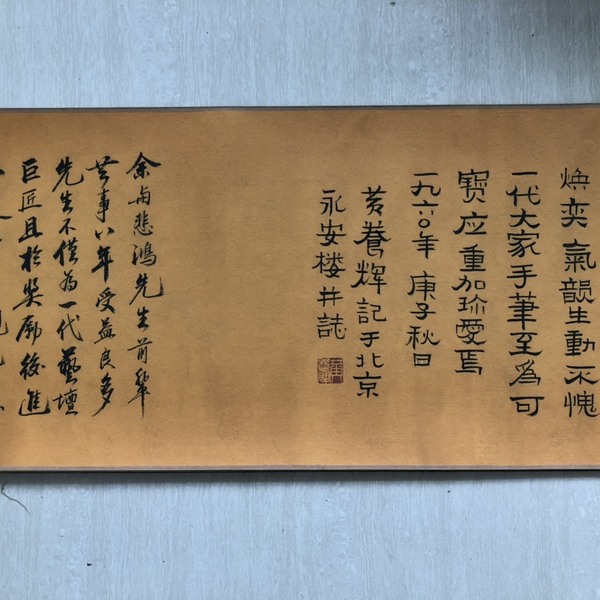 焕奕氣韻生動不愧
一代大家手筆至爲可
寶应重加珍愛焉
一九六〇年庚子秋日
黄養辉記于北京
永安楼并誌
余与悲鴻先生前輩
共事八年受益良多
先生不僅為一代藝壇
巨匠且於奖勵後進